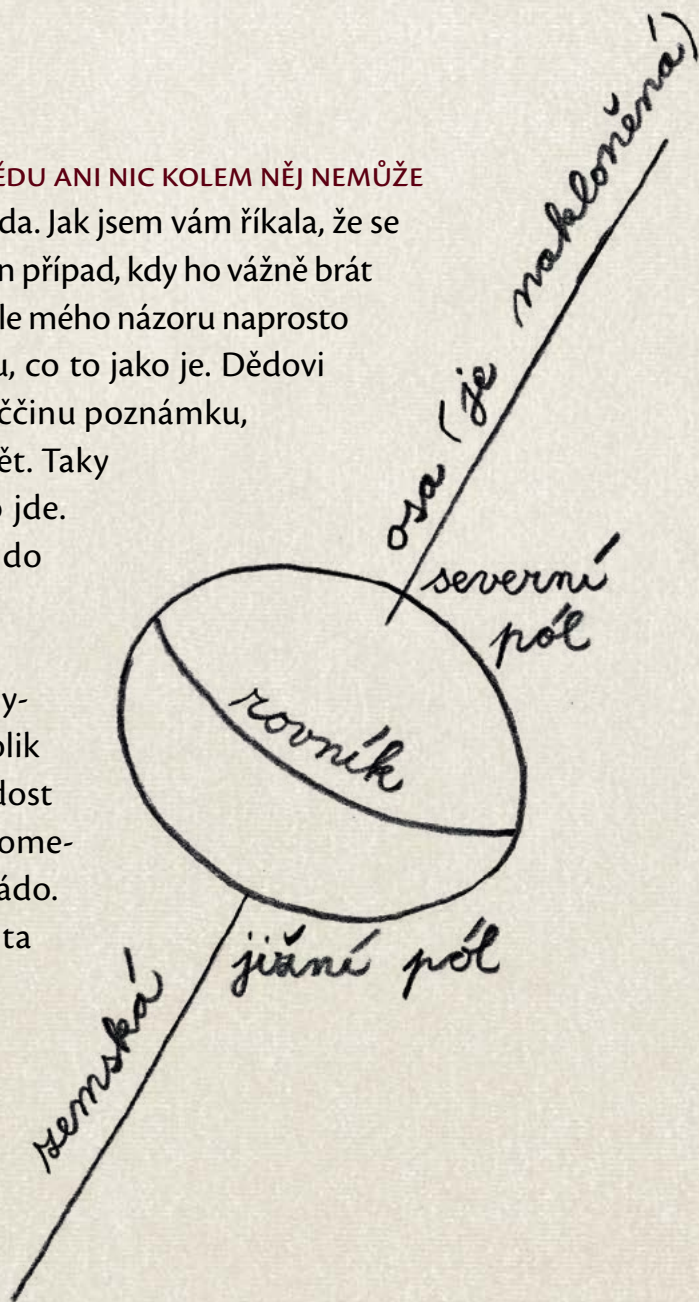 ĚDU ANI NIC KOLEM NĚJ NEMŮŽE
da. Jak jsem vám říkala, že se
n případ, kdy ho vážně brát
le mého názoru naprosto
u, co to jako je. Dědovi
ččinu poznámku,
ět. Taky
o jde.
do
y-
olik
dost
ome-
ádo.
ta
zemská
osa (je nakloněná)
severní
pól
rovník
jižní pól